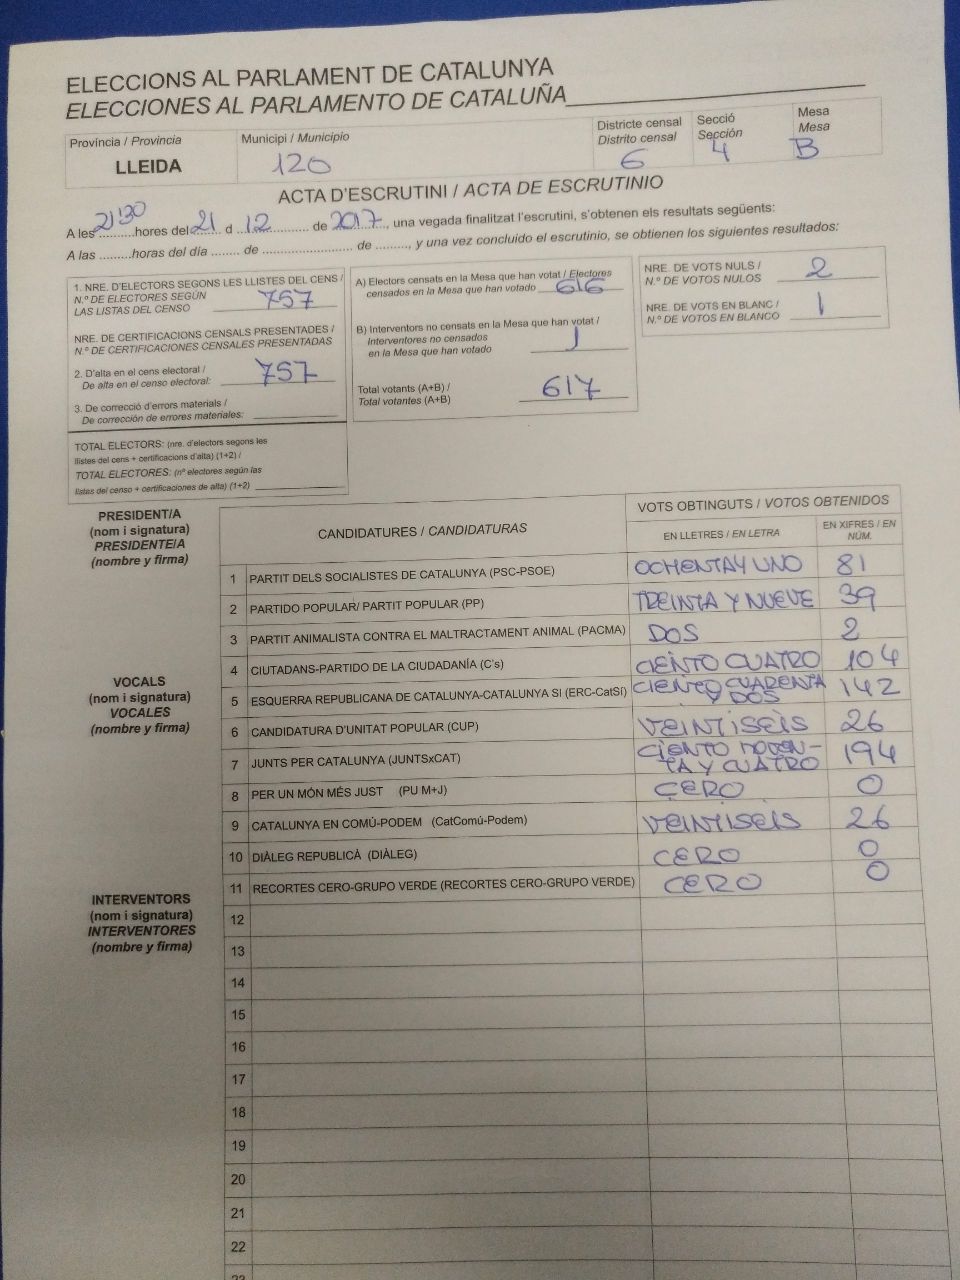 ELECCIONS AL PARLAMENT DE CATALUNYA
ELECCIONES AL PARLAMENTO DE CATALUÑA
Província / Provincia
LLEIDA
Municipi / Municipio
120
Districte censal
Distrito censal
6
Secció
Sección
4
Mesa
Mesa
B
ACTA D'ESCRUTINI / ACTA DE ESCRUTINIO
A les 21'30 hores del 21 d 12 de 2017, una vegada finalitzat l'escrutini, s'obtenen els resultats següents:
A las .........horas del día ....... de ...................... de ........, y una vez concluido el escrutinio, se obtienen los siguientes resultados:
1. NRE. D'ELECTORS SEGONS LES LLISTES DEL CENS /
N.º DE ELECTORES SEGÚN
LAS LISTAS DEL CENSO 757
NRE. DE CERTIFICACIONS CENSALS PRESENTADES /
N.º DE CERTIFICACIONES CENSALES PRESENTADAS
2. D'alta en el cens electoral /
De alta en el censo electoral: 757
3. De correcció d'errors materials /
De corrección de errores materiales:
TOTAL ELECTORS: (nre. d'electors segons les
llistes del cens + certificacions d'alta) (1+2) /
TOTAL ELECTORES: (nº electores según las
listas del censo + certificaciones de alta) (1+2)
A) Electors censats en la Mesa que han votat / Electores
censados en la Mesa que han votado 616
B) Interventors no censats en la Mesa que han votat /
Interventores no censados
en la Mesa que han votado 1
Total votants (A+B) /
Total votantes (A+B) 617
NRE. DE VOTS NULS /
N.º DE VOTOS NULOS 2
NRE. DE VOTS EN BLANC /
N.º DE VOTOS EN BLANCO 1
PRESIDENT/A
(nom i signatura)
PRESIDENTE/A
(nombre y firma)
VOCALS
(nom i signatura)
VOCALES
(nombre y firma)
INTERVENTORS
(nom i signatura)
INTERVENTORES
(nombre y firma)
CANDIDATURES / CANDIDATURAS
VOTS OBTINGUTS / VOTOS OBTENIDOS
EN LLETRES / EN LETRA
EN XIFRES / EN
NÚM.
1 PARTIT DELS SOCIALISTES DE CATALUNYA (PSC-PSOE) OCHENTA Y UNO 81
2 PARTIDO POPULAR/ PARTIT POPULAR (PP) TREINTA Y NUEVE 39
3 PARTIT ANIMALISTA CONTRA EL MALTRACTAMENT ANIMAL (PACMA) DOS 2
4 CIUTADANS-PARTIDO DE LA CIUDADANÍA (C's) CIENTO CUATRO 104
5 ESQUERRA REPUBLICANA DE CATALUNYA-CATALUNYA SI (ERC-CatSí) CIENTO CUARENTA Y DOS 142
6 CANDIDATURA D'UNITAT POPULAR (CUP) VEINTISEIS 26
7 JUNTS PER CATALUNYA (JUNTSxCAT) CIENTO NOVEN-TA Y CUATRO 194
8 PER UN MÓN MÉS JUST (PU M+J) CERO 0
9 CATALUNYA EN COMÚ-PODEM (CatComú-Podem) VEINTISEIS 26
10 DIÀLEG REPUBLICÀ (DIÀLEG) CERO 0
11 RECORTES CERO-GRUPO VERDE (RECORTES CERO-GRUPO VERDE) CERO 0
12
13
14
15
16
17
18
19
20
21
22
23